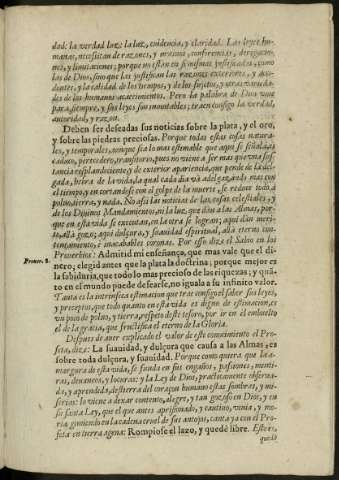 dad: la verdad luz: la luz, evidencia, y claridad. Las leyes hu-
manas, necessitan de razones, y
nes, y limitaciones; porque no estàn en sì mesmas justificadas, como
las de Dios, sino que las justifican las razones exteriores, y acci-
dentes, y la calidad de los tiempos, y de los sujetos, y otras
des de los humanos acaecimientos. Pero la palabra de Dios vive
para siempre, y sus leyes son inmutables; traen consigo la verdad,
autoridad, y razon.
Deben ser deseadas sus noticias sobre la plata, y el oro,
y sobre las piedras preciosas. Porque todas estas cosas natura-
les, y temporales, aunque sea lo mas estimable que aqui se señala, es
caduco, perecedero, transitorio, pues no viene à ser mas que una sus-
tancia resplandeciente, y de exterior apariencia, que pende de la
de la vida, la qual cada dia và adelgazando mas con
el tiempo, y en cortandose con el golpe de la muerte, se reduce todo à
polvo, tierra, y nada. No assi las noticias de las cosas celestiales, y
de los Divinos Mandamientos, ni la luz, que dàn à las Almas, por-
que en esta vida se executan, en la otra se logran; aqui dàn
alli gozo; aqui dulçura, y suavidad espiritual, allà eterno con-
tentamiento, è inacabables coronas. Por esso dize el Sabio en los
Proverbios: Admitid mi enseñança, que mas vale que el di-
Prover. 8.
nero; elegid antes que la plata la doctrina; porque mejor es
la sabiduria, que todo lo mas precioso de las riquezas; y quã-
to en el mundo puede desearse, no iguala à su infinito valor.
Tanta es la intrinseca estimacion que trae consigo el saber sus leyes,
y preceptos, que todo quanto en esta vida es digno de estimacion, es
un poco de polvo, y tierra, respeto deste tesoro, por ir en el embuelto
el de la gracia, que fructifica el eterno de la Gloria.
Despues de aver explicado el valor de este conocimiento el Pro-
feta, dize: La suavidad, y dulçura que causa à las Almas, es
sobre toda dulçura, y suavidad. Porque como quiera que la a-
margura de esta vida, se funda en sus engaños, passiones, menti-
ras, devaneos, y locuras: y la Ley de Dios, practicamente observa-
da, y aprendida, destierra del coraçon humano estas sombras, y mi-
serias: lo viene à dexar contento, alegre, y tan gozoso en Dios, y en
su santa Ley, que el que antes aprisionado, y cautivo, vivia, y mo-
ria gimiendo en la cadena cruel de sus antojos, canta ya con el Pro-
feta en tierra agena: Rompiose el lazo, y quedè libre. Esto es,
que lo